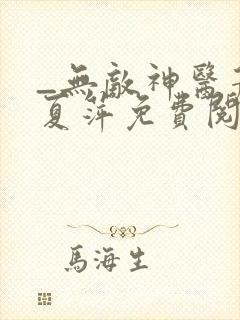 _無敵神醫
夏萍免費閱
馬海生